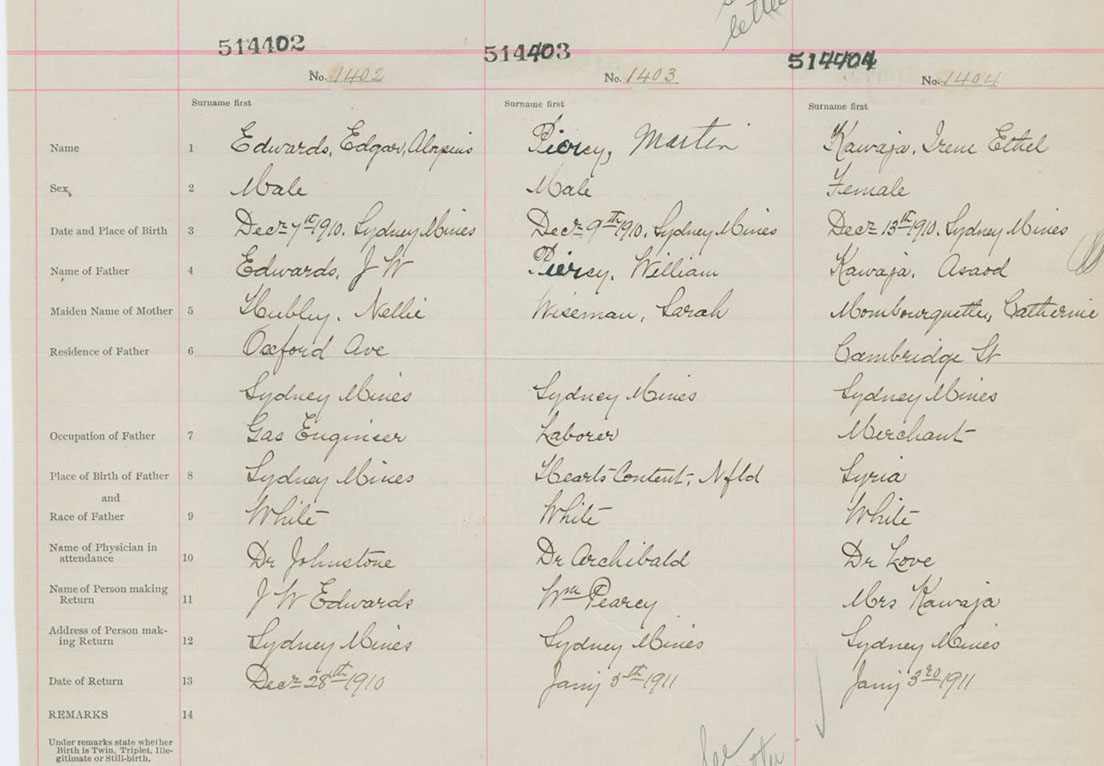 letter
514402 514403 514404
No. 1402 No. 1403 No. 1404
Surname first Surname first Surname first
Name 1 Edwards, Edgar, Aloysius Piercy, Martin Kawaja, Irene Ethel
Sex, 2 Male Male Female
Date and Place of Birth 3 Decr 7th 1910. Sydney Mines Decr 9th 1910. Sydney Mines Decr 13th 1910. Sydney Mines
Name of Father 4 Edwards, J W Piercy, William Kawaja, Asaod
Maiden Name of Mother 5 Hubley, Nellie Wiseman, Sarah Mombourquette, Catherine
Residence of Father 6 Oxford Ave Cambridge St
Sydney Mines Sydney Mines Sydney Mines
Occupation of Father 7 Gas Engineer Laborer Merchant
Place of Birth of Father 8 Sydney Mines Hearts Content, Nfld Syria
and
Race of Father 9 White White White
Name of Physician in
attendance 10 Dr Johnstone Dr Archibald Dr Love
Name of Person making
Return 11 J W Edwards Wm Pearcy Mrs Kawaja
Address of Person mak-
ing Return 12 Sydney Mines Sydney Mines Sydney Mines
Date of Return 13 Decr 28th 1910 Jany 5th 1911 Jany 3rd 1911
REMARKS 14
Under remarks state whether
Birth is Twin, Triplet, Ille-
gitimate or Still-birth.
See